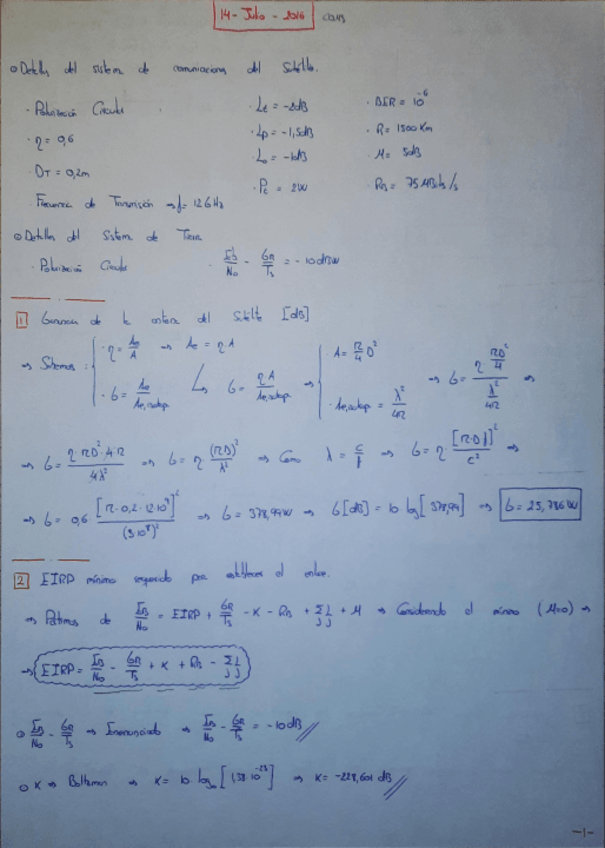 14 - Julio - 2016
⊙ Detalles del sistema de comunicaciones del Satélite.
· Polarización Circular · Lt = -2dB · BER = 10^-6
· η = 0,6 · Lp = -1,5dB · R = 1500 Km
· DT = 0,2m · La = -1dB · M = 3dB
· Pt = 2W · RB = 75 MBits/s
· Frecuencia de Transmisión → f = 12 GHz
⊙ Detalles del Sistema de Tierra
· Polarización Circular · Eb/No - GR/Ts = -10 dBW
1 Ganancia de la antena del Satélite [dB]
⇒ Sabemos: · η = Ae/A ⇒ Ae = η·A · A = π/4 D²
· G = Ae/Ae,isotrop G = η·A/Ae,isotrop ⇒ · Ae,isotrop = λ²/4π ⇒ G = η (πD²/4)/(λ²/4π) ⇒
⇒ G = η·πD²·4·π/4λ² ⇒ G = η (πD)²/λ² ⇒ Como λ = c/f ⇒ G = η·[π·D·f]²/c² ⇒
⇒ G = 0,6 [π·0,2·12·10⁹]²/(3·10⁸)² ⇒ G = 378,99W ⇒ G[dB] = 10 log[378,99] ⇒ G = 25,786W
2 EIRP mínimo requerido para establecer el enlace.
⇒ Partimos de Eb/No = EIRP + GR/Ts - K - RB + ΣLj + M ⇒ Considerando el mínimo (M=0) ⇒
⇒ EIRP = Eb/No - GR/Ts + K + RB - ΣLj
⊙ Eb/No - GR/Ts ⇒ Enunciado ⇒ Eb/No - GR/Ts = -10dB
⊙ K ⇒ Boltzman ⇒ K = 10 log10 [1,38·10^-23] ⇒ K = -228,601 dB
-1-